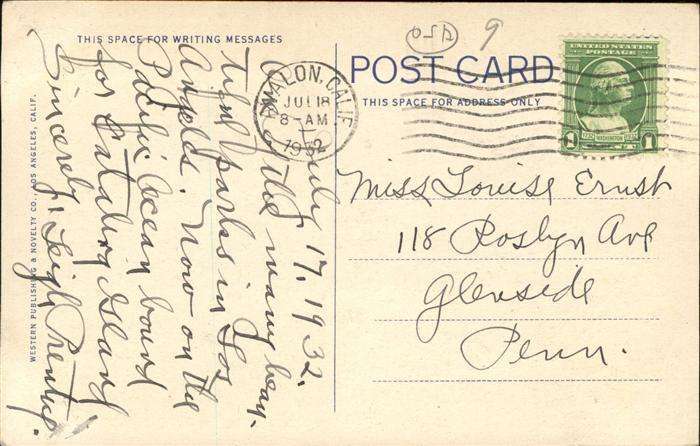 THIS SPACE FOR WRITING MESSAGES
POST CARD
THIS SPACE FOR ADDRESS ONLY
WESTERN PUBLISHING & NOVELTY CO., LOS ANGELES, CALIF.
AVALON, CALIF.
JUL 18
8-AM
1932
UNITED STATES POSTAGE
1732 WASHINGTON 1932
1 CENT 1
9
July 17, 1932.
One of the many beau-
tiful parks in Los
Angeles. Now on the
Pacific Ocean bound
for Catalina Island
Sincerely, Leigh
Miss Louise Ernst
118 Roslyn Ave
Glenside
Penn.